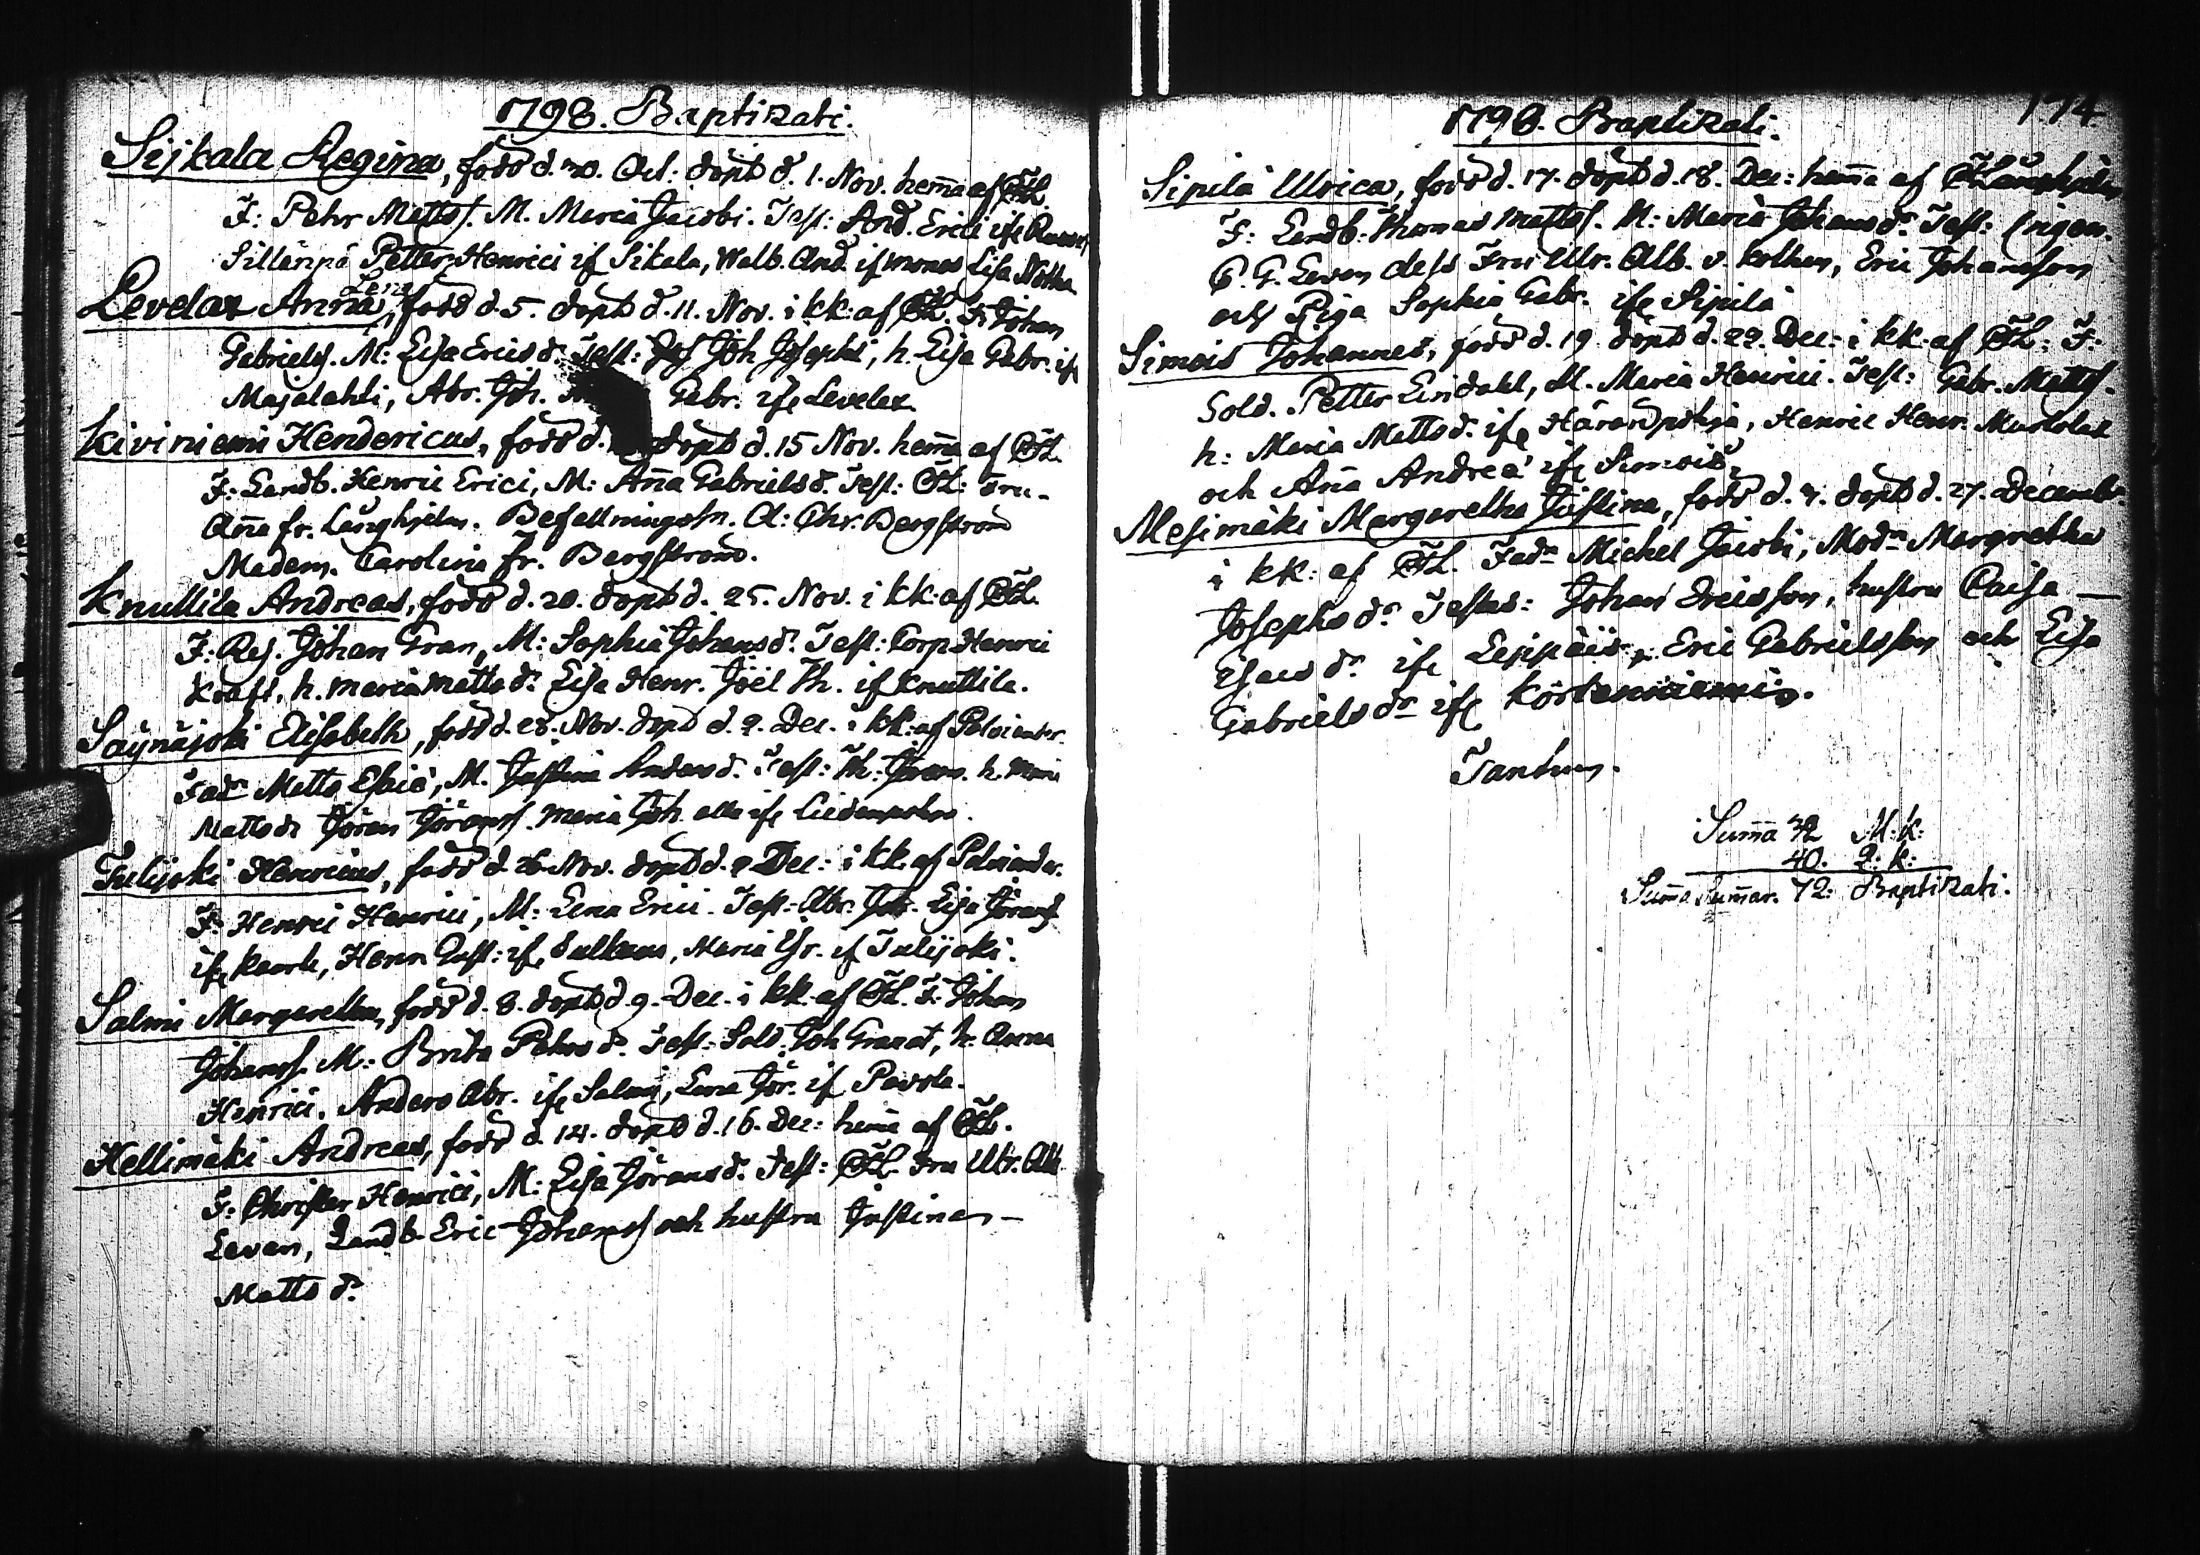 1798. Baptizati.
Sijkala Regina, född d. 30. Oct: döpt d. 1. Nov. hem̄a af
F: Pehr Mattsſ. M. Maria Jacobi. Test: And. Erici if
Sillänpä Petter Henrici if Sikala, Walb. And. if Lisa
Levelax Anna Lena, född d. 5. döpt d. 11. Nov. i kk: af F: Johan
Gabrielsſ. M: Lisa Ericsdr. Test: Joh Josephi, h. Lisa Gabr. if
Majalahti, Abr. Joh. Gabr. if Levelax
Kiviniemi Hendericus, född d. döpt d. 15 Nov. hem̄a af
F: Landb. Henric Erici, M: An̄a Gabrielsdr. Test: Fru-
An̄a fr. Långhjelm. Befallningsm. A: Chr: Bergström
Madam. Carolina Fr. Bergström.
Knuttila Andreas, född d. 20. döpt d. 25. Nov. i kk: af
F: Res. Johan Gran, M: Sophia Johansdr. Test: Corp. Henric
Kraft, h. Maria Mattsdr. Lisa Henr. Joël Th. if Knuttila.
Säynäjoki Elisabeth, född d. 28. Nov. döpt d. 2. Dec. i kk: af Polviander.
Fadr Matts Esaiæ, M. Justina Andersdr. Test: Th: Jörans. h. Maria
Mattsdr Jöran Jöransſ. Maria Joh. alla if
Julijoki Henricus, född d. 26 Nov. döpt d. 2 Dec: i kk. af Polviander.
F: Henric Henrici, M: Lena Erici. Test: Abr: Joh. Lisa Jöransd
if Kaarle, Henr Gust: if, Maria if Julijoki.
Salmi Margaretha, född d. 8. döpt d. 9. Dec. i kk. af F: Johan
Johansſ. M: Brita Pehrsdr. Test: Sold. Joh Granat, h. Anna
Henrici. Anders Abr. if Salmi, Lena Jör. if Pavola.
Hellimäki Andreas, född d. 14. döpt d. 16. Dec: hem̄a af
F: Christer Henrici, M: Lisa Jöransdr. Test: Fru Ulr. Alb
Leven, Landb. Eric Johansſ och hustru Justina -
Mattsdr.
174.
1798. Baptizati.
Sipilä Ulrica, född d. 17. döpt d. 18. Dec: hem̄a af Långhjelm
F: Landb: Thomas Mattsſ. M: Maria Johansdr. Test:
C. G. Leven dess Fru Ulr. Alb. v. Kothen, Eric Johansson
och Piga Sophia Gabr. if Sipilä
Simois Johannes, född d. 19. döpt d. 22. Dec: i kk: af F:
Sold. Petter Lindahl, M. Maria Henrici. Test: Gabr. Mattsſ.
h: Maria Mattsdr. if, Henric Henr.
och An̄a Andreæ if Simois.
Mesimäki Margaretha Justina, född d. döpt d. 27. Decemb.
i kk: af Fadr Michel Jacobi, Modr Margretha
Josephsdr. Testes: Johan Ericsson, hustru Caisa —
Esaisdr if Leppäis, Eric Gabrielsson och Lisa
Gabrielsdr if Körtenniemi.
Tantum.
Sum̄a 32 M: K:
40. Q: K:
Sum̄a Sum̄ar. 72: Baptizati.